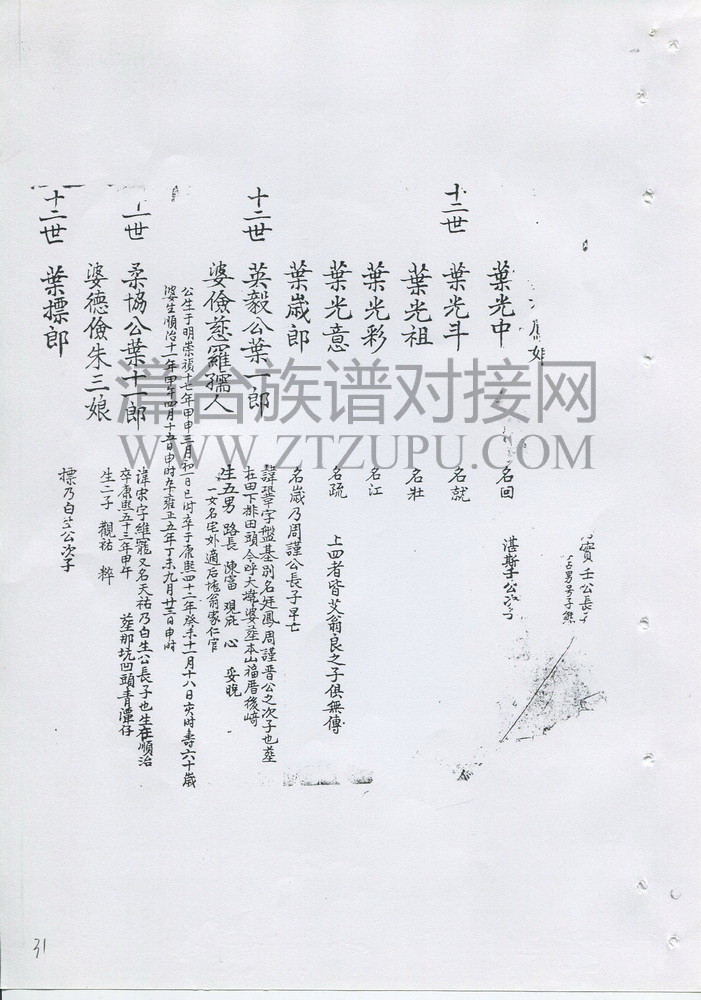 葉光中 名回
十二世 葉光斗 名就
葉光祖 名壯
葉光彩 名江
葉光意 名疏 上四者皆艾翁良之子俱無傳
葉歲郎 名歲乃周謹公長子早亡
十二世 英毅公葉一郎 諱瑞字盤基別名廷鳳周謹晋公之次子也塟
在田下排田頭今呼大墩婆塟本山福厝後崎
婆儉慈羅孺人 生五男 路長 陳富 現庇 心 妥晚
一女名宅外適后垅翁家仁官
公生于明崇禎十七年甲申三月初一日巳時卒于康熙四十二年癸未十一月十八日亥時壽六十歲
婆生順治十一年甲午四月十五日申時卒雍正五年丁未九月廿三日申時
世 柔協公葉十一郎 諱宋字維寵又名天祐乃白生公長子也生在順治
卒康熙五十三年甲午 塟那坑凹頭青潭仔
婆德儉朱三娘 生二子 觀祐 粹
十二世 葉標郎 標乃白生公次子
漳台族谱对接网
WWW.ZTZUPU.COM
31